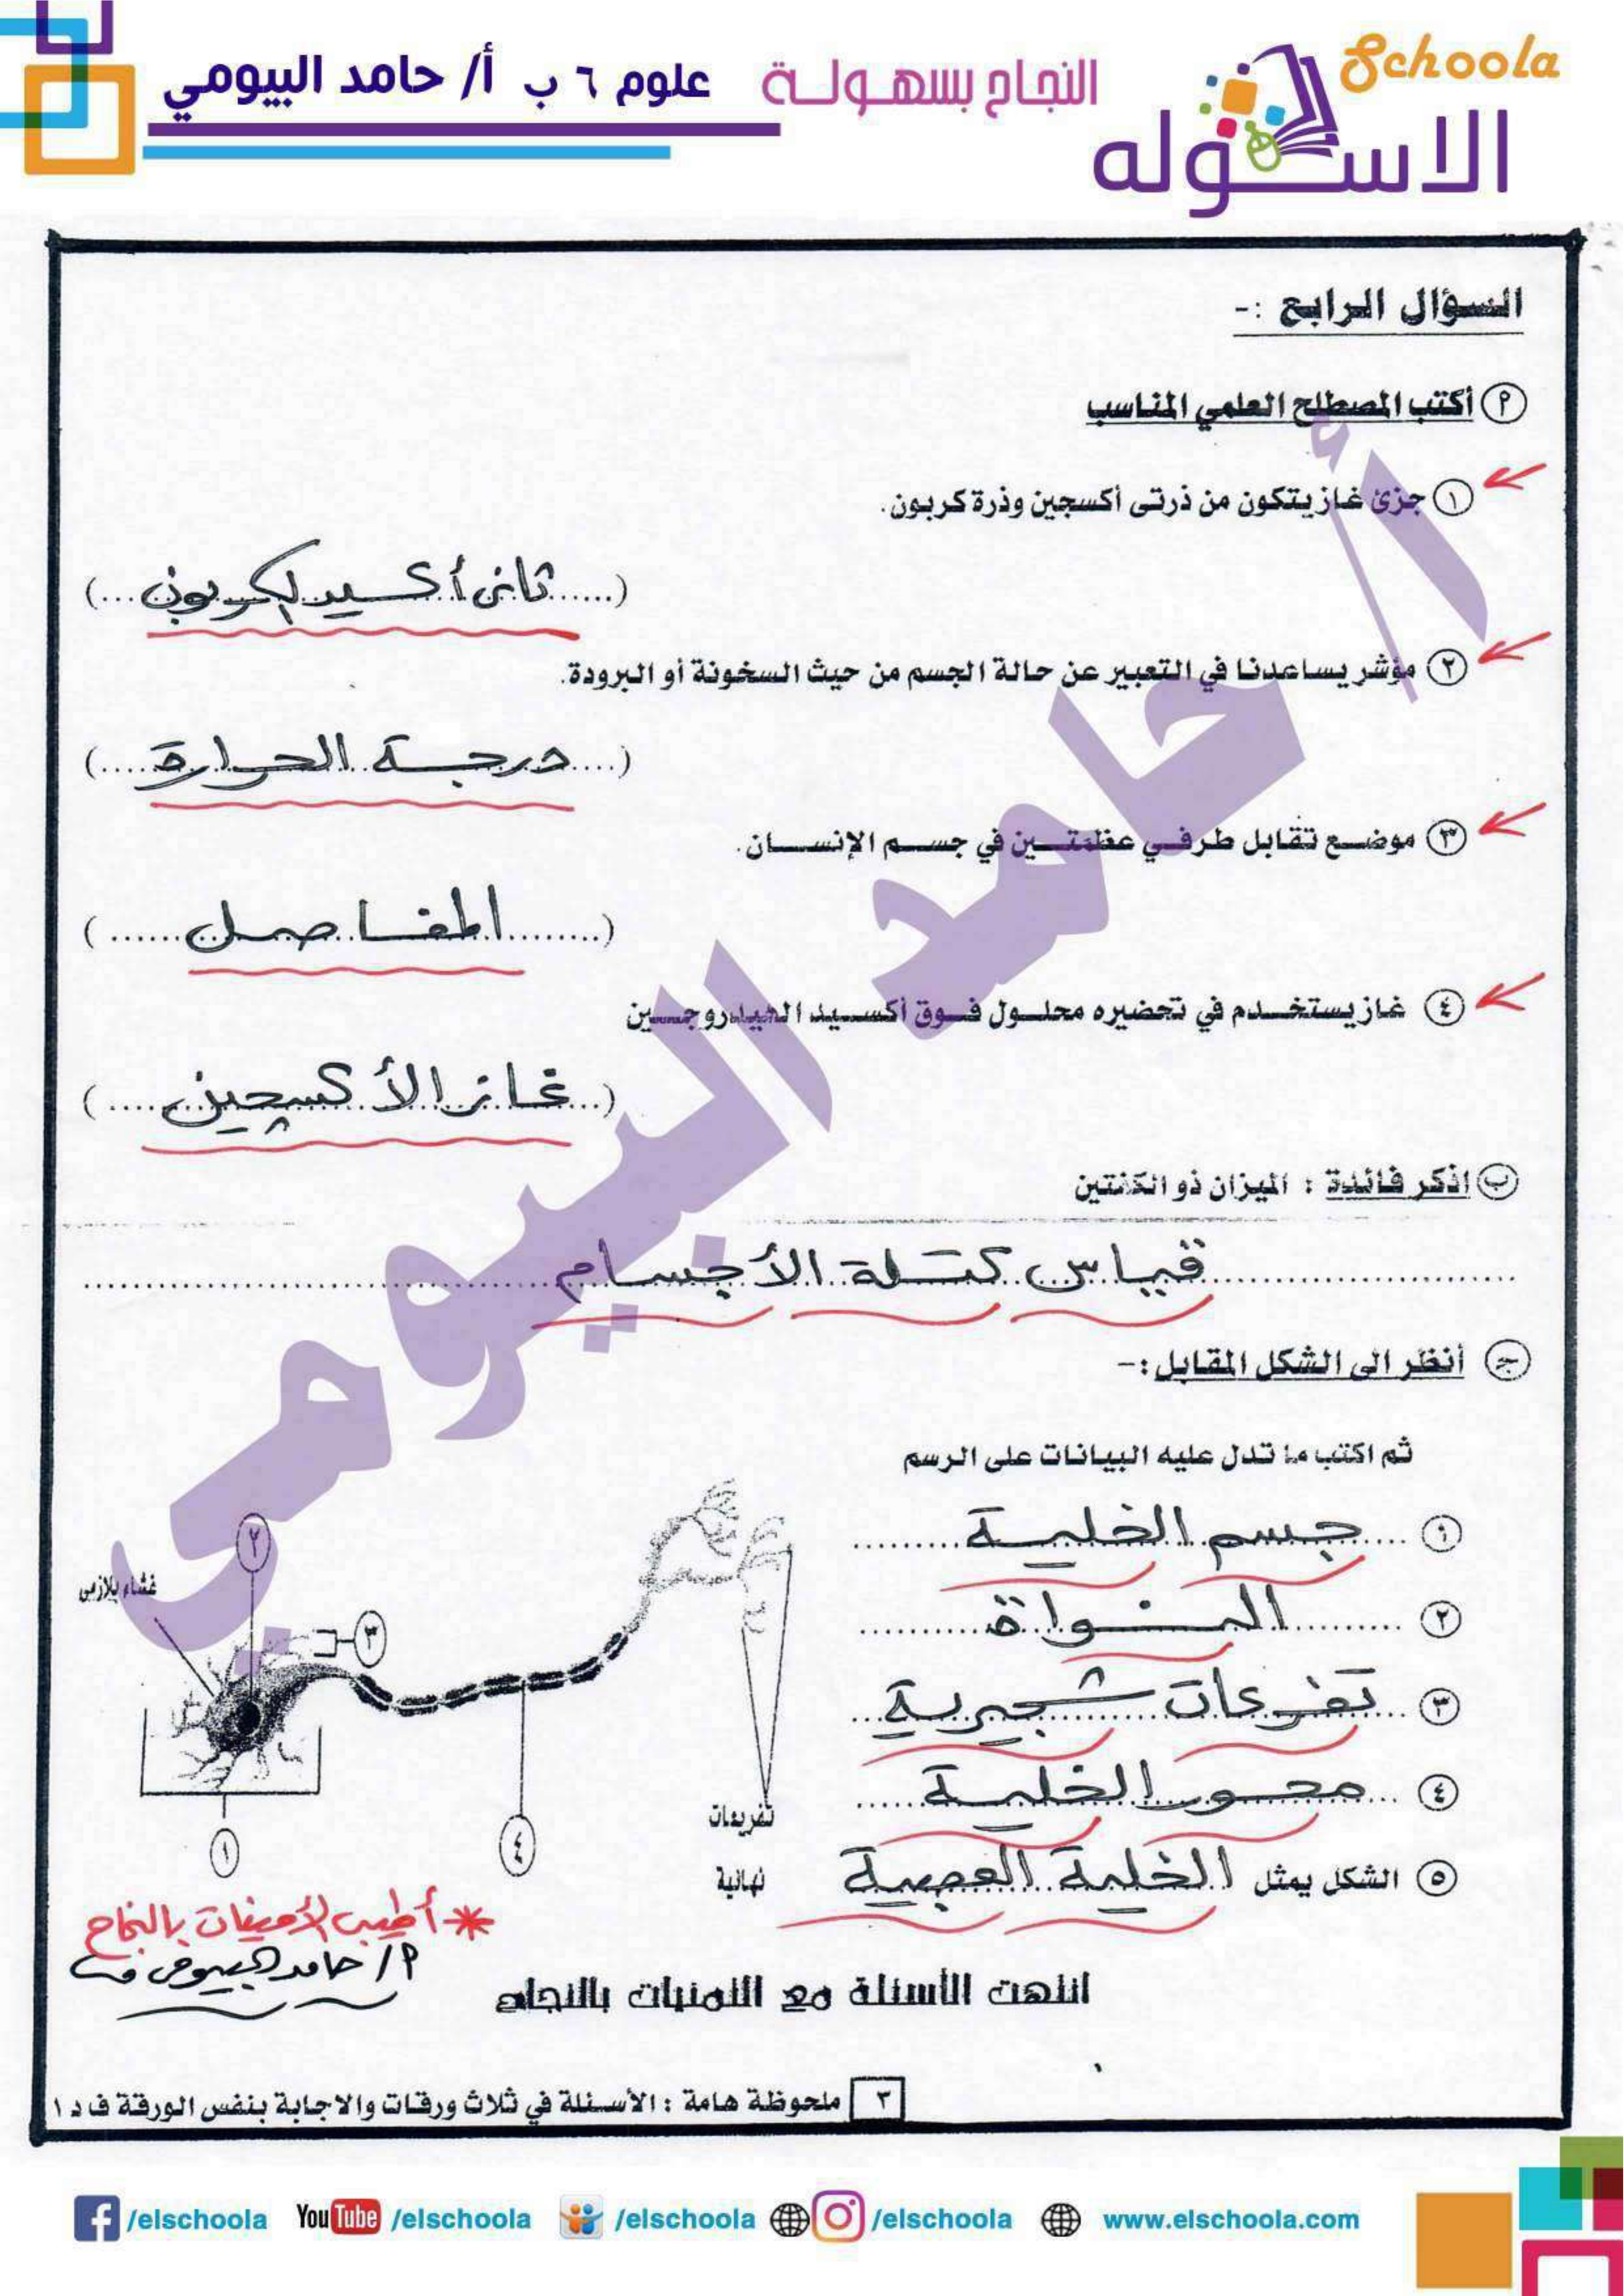 Schoola
الاسكوله
النجاح بسهولة
علوم ٦ ب أ/ حامد البيومي
السؤال الرابع :-
أ أكتب المصطلح العلمي المناسب
١ جزئ غاز يتكون من ذرتى أكسجين وذرة كربون.
(......ثانى أكسيد الكربون...)
٢ مؤشر يساعدنا في التعبير عن حالة الجسم من حيث السخونة أو البرودة.
(....درجة الحرارة....)
٣ موضع تقابل طرفي عظمتين في جسم الإنسان.
(.........المفاصل......)
٤ غاز يستخدم في تحضيره محلول فوق أكسيد الهيدروجين
(...غاز الأكسچين....)
ب اذكر فائدة : الميزان ذو الكفتين
قياس كتلة الأجسام
ج أنظر الى الشكل المقابل :-
ثم اكتب ما تدل عليه البيانات على الرسم
١ جسم الخلية
٢ النواة
٣ تفرعات شجيرية
٤ محور الخلية
٥ الشكل يمثل الخلية العصبية
٢
غشاء بلازمى
٣
تفريعات
نهائية
١
٤
* أطيب الأمنيات بالنجاح
أ/ حامد البيومى
انتهت الأسئلة مع التمنيات بالنجاح
٣ ملحوظة هامة : الأسئلة في ثلاث ورقات والاجابة بنفس الورقة ف د ١
/elschoola YouTube /elschoola /elschoola /elschoola www.elschoola.com
أ/ حامد البيومي